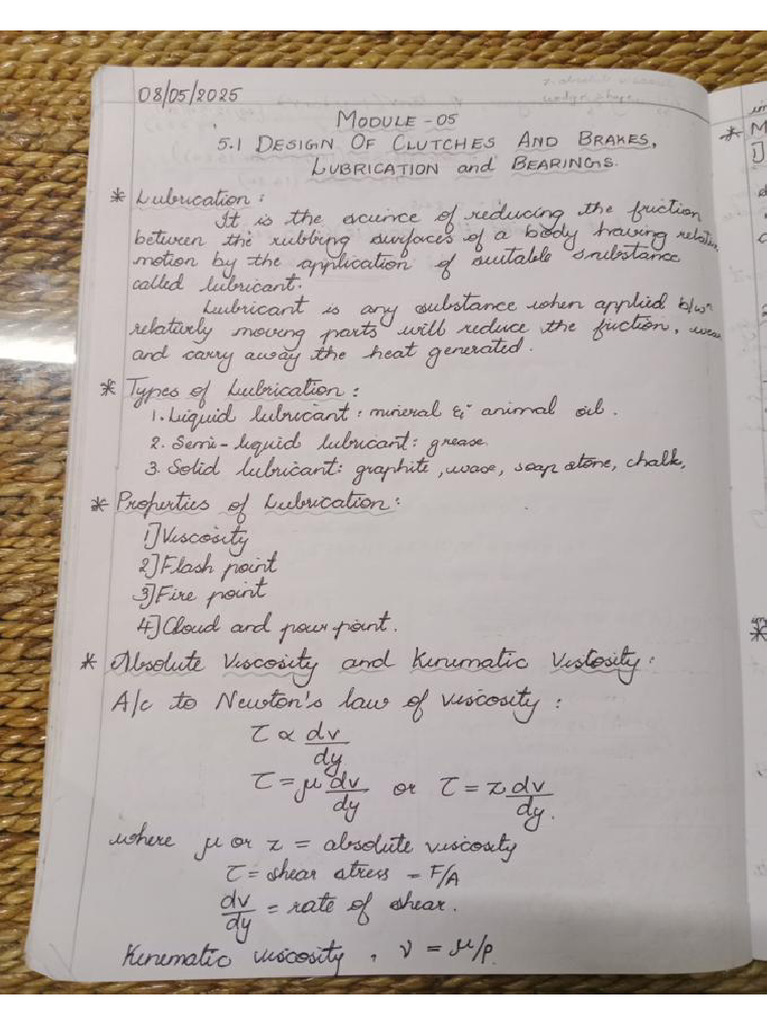 08/05/2025
MODULE - 05
5.1 DESIGN OF CLUTCHES AND BRAKES,
LUBRICATION and BEARINGS.
* Lubrication :
It is the science of reducing the friction
between the rubbing surfaces of a body having
motion by the application of suitable substance
called lubricant.
Lubricant is any substance when applied b/wⁿ
relatively moving parts will reduce the friction, wear
and carry away the heat generated.
* Types of Lubrication :
1. Liquid lubricant : mineral & animal oil.
2. Semi-liquid lubricant : grease.
3. Solid lubricant : graphite, wax, soap stone, chalk,
* Properties of Lubrication :
1] Viscosity
2] Flash point
3] Fire point
4] Cloud and pour point.
* Absolute Viscosity and Kinematic Viscosity :
A/c to Newton's law of viscosity :
τ ∝ dv/dy
τ = μ dv/dy or τ = z dv/dy.
where μ or z = absolute viscosity
τ = shear stress = F/A
dv/dy = rate of shear.
Kinematic viscosity, ν = μ/ρ.
* M
1]